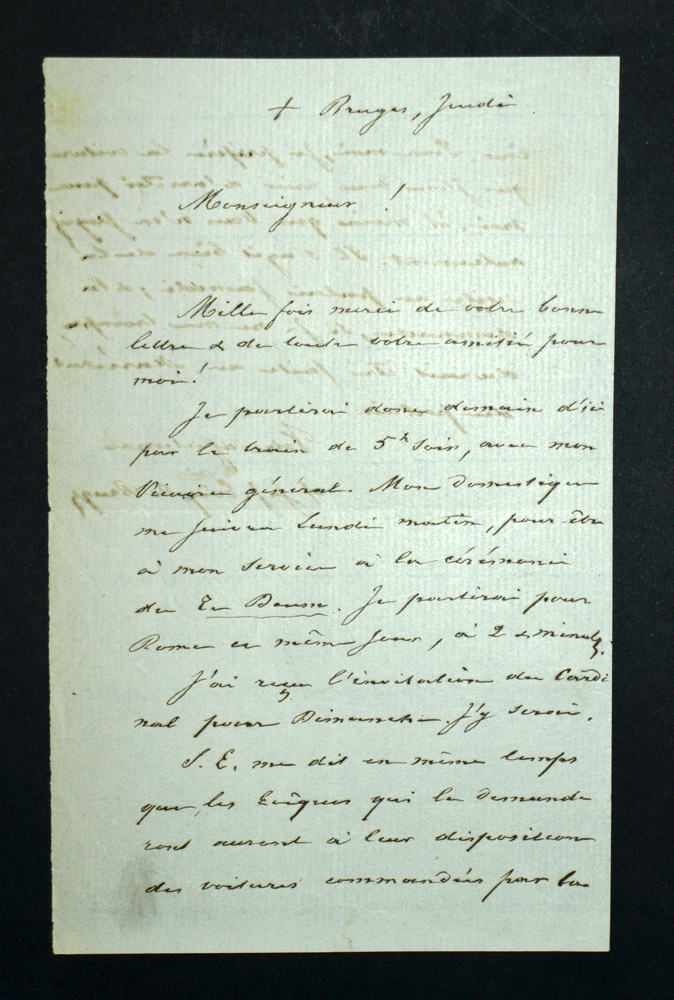 + Bruges, Jeudi
Monseigneur !
Mille fois merci de votre bonne
lettre & de toute votre amitié pour
moi !
Je partirai donc demain d'ici
par le train de 5h Soir, avec mon
Vicaire général. Mon Domestique
me suivra Lundi matin, pour être
à mon service à la cérémonie
du Te Deum. Je partirai pour
Rome ce même jour, à 2
J'ai reçu l'invitation du Cardi
nal pour Dimanche. J'y serai.
S. E. me dit en même temps
que les Evêques qui le demande
ront auront à leur disposition
des voitures commandées par